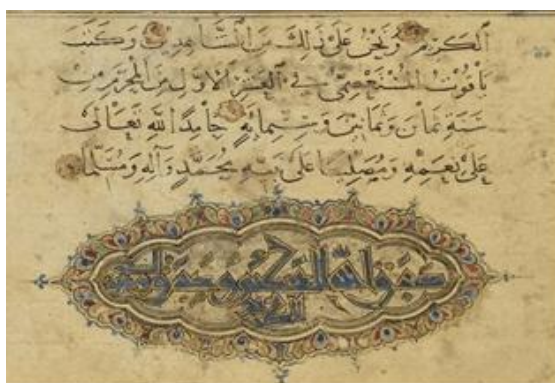 الكريم ونحن على ذلك من الشاهدين وكتب
ياقوت المستعصمي في العشر الاول من المحرم
سنة ثمان وثمانين وستمائة حامدا لله تعالى
على نعمه ومصليا على نبيه محمد وآله ومسلما
صدق الله